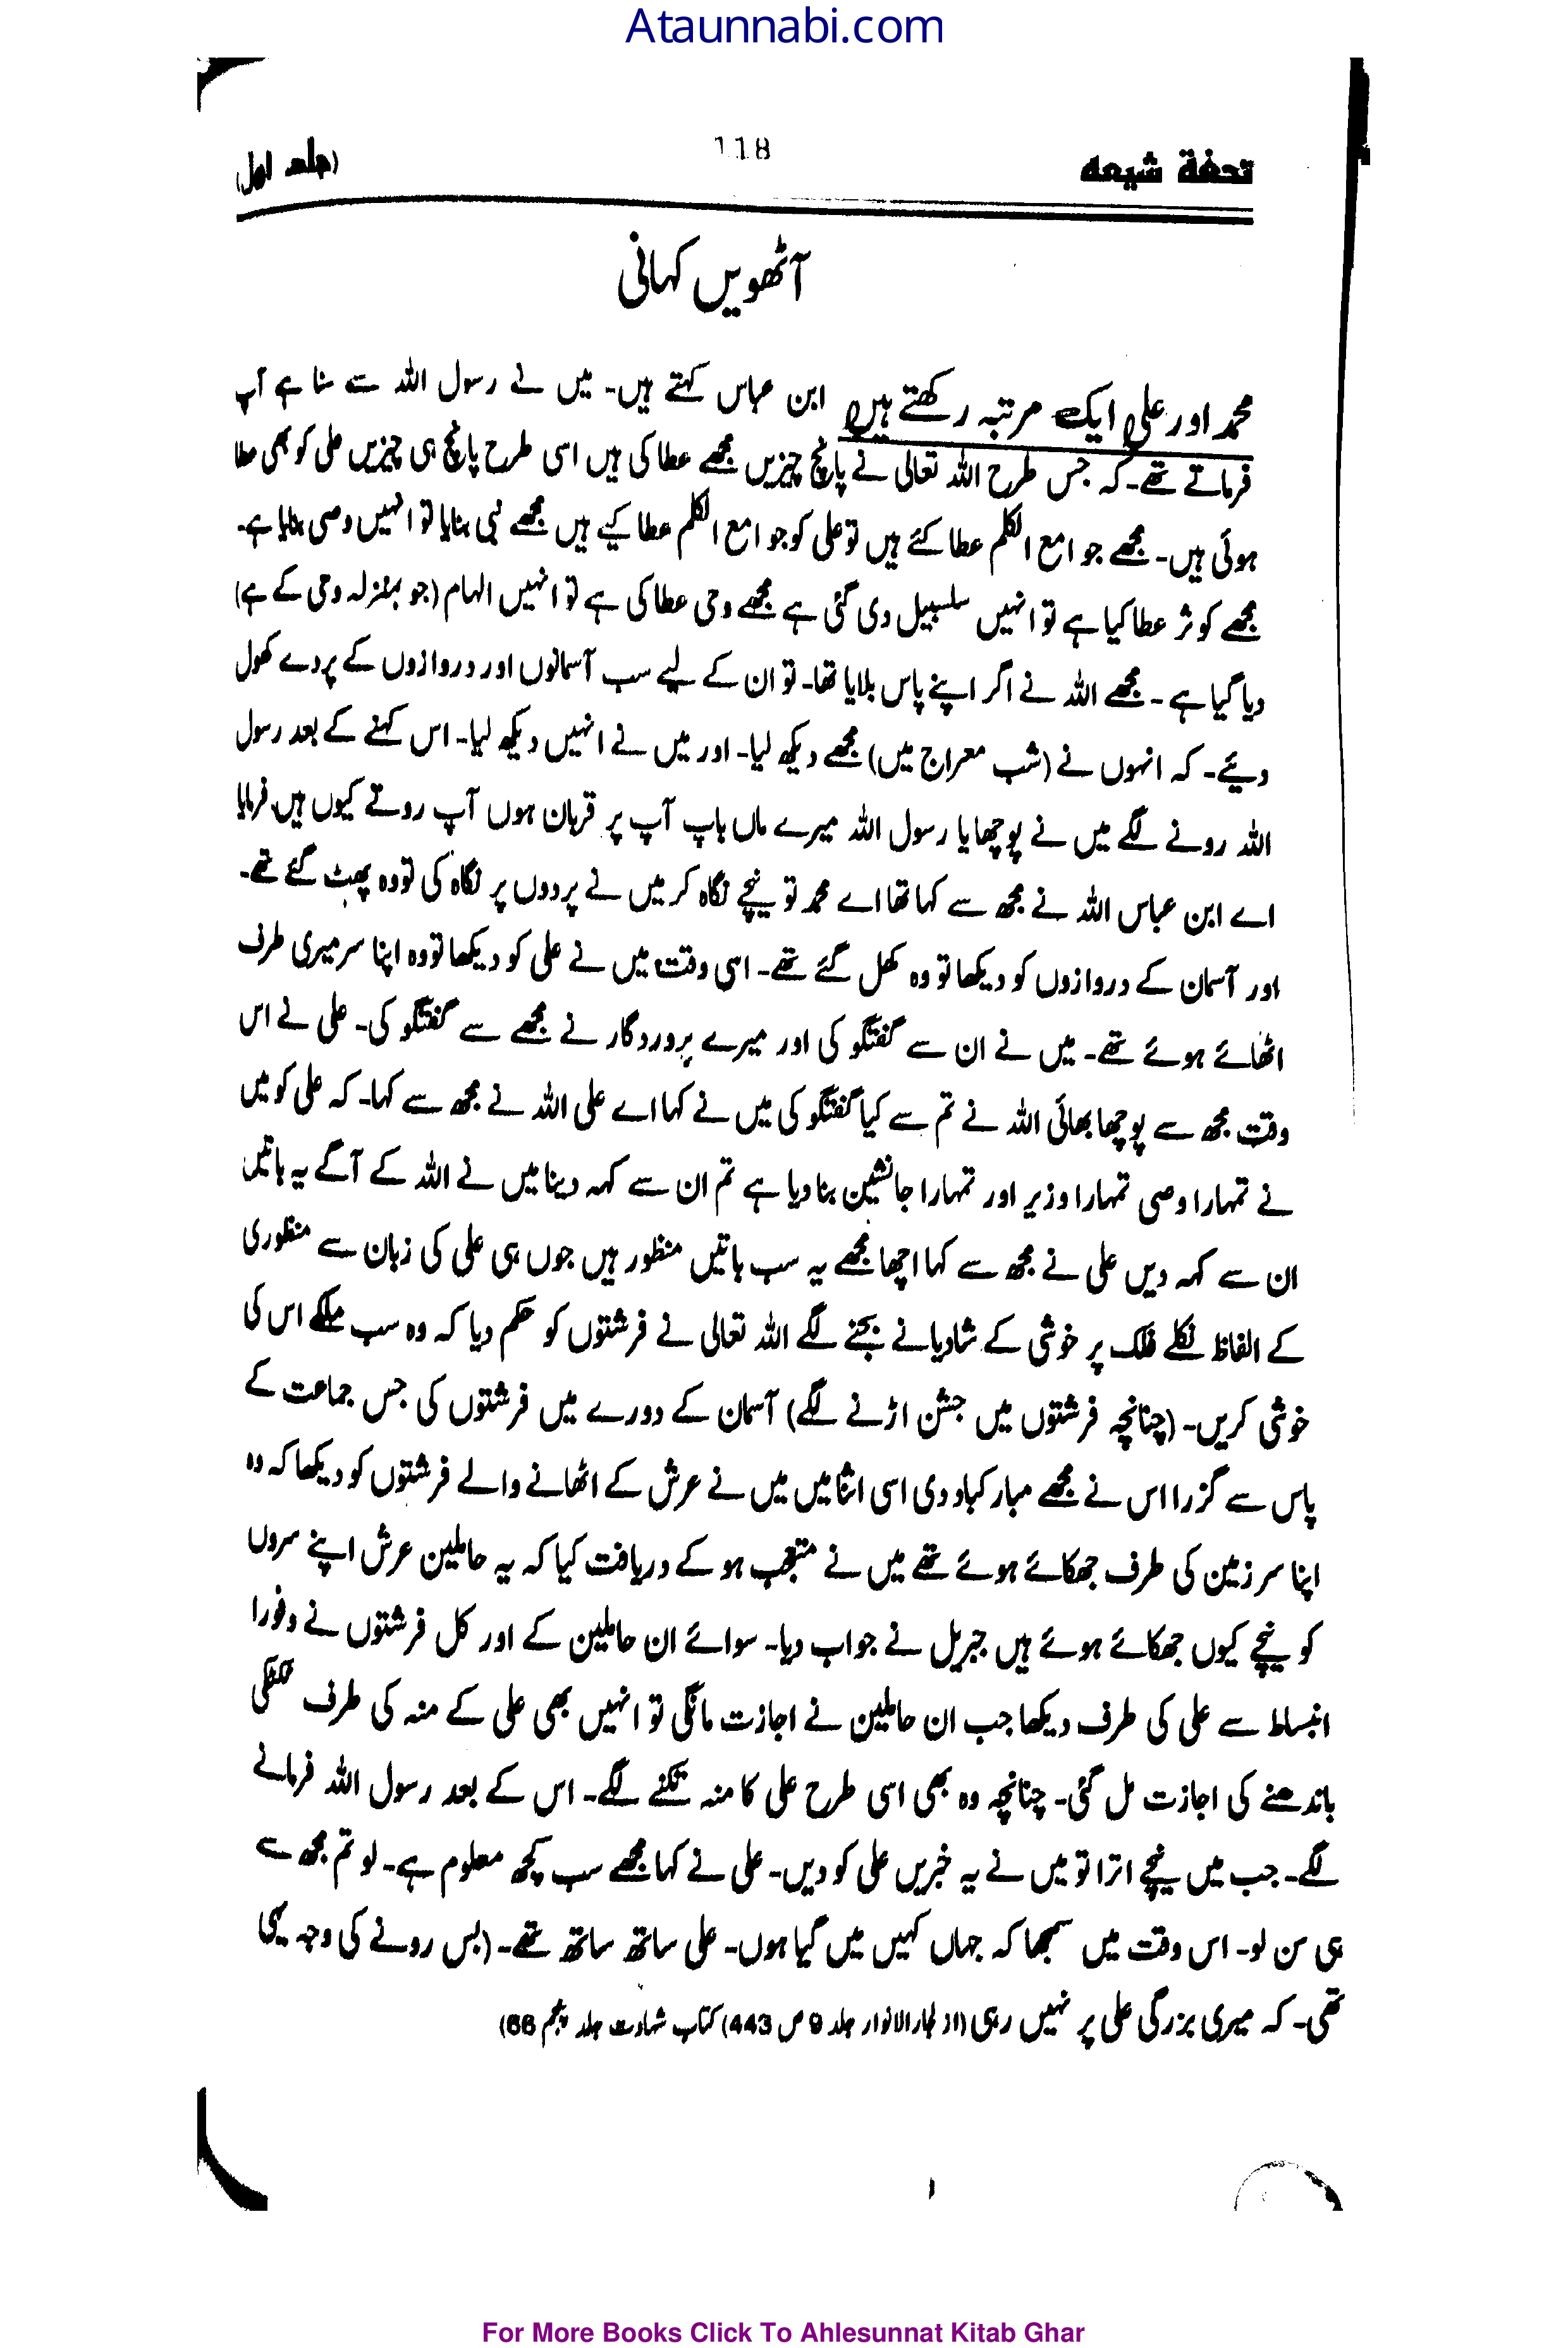 Ataunnabi.com
تحفۃ شیعہ 118 (جلد اول)
آٹھویں کہانی
محمد اور علی ایک مرتبہ رکھتے ہیں ابن عباس کہتے ہیں۔ میں نے رسول اللہ سے سنا ہے آپ
فرماتے تھے۔ کہ جس طرح اللہ تعالی نے پانچ چیزیں مجھے عطا کی ہیں اسی طرح پانچ ہی چیزیں علی کو بھی عطا
ہوئی ہیں۔ مجھے جوامع الکلم عطا کئے ہیں تو علی کو جوامع الکلم عطا کیے ہیں مجھے نبی بنایا تو انہیں وصی بنایا ہے۔
مجھے کوثر عطا کیا ہے تو انہیں سلسبیل دی گئی ہے مجھے وحی عطا کی ہے تو انہیں الہام (جو بمنزلہ وحی کے ہے)
دیا گیا ہے۔ مجھے اللہ نے اگر اپنے پاس بلایا تھا۔ تو ان کے لیے سب آسمانوں اور دروازوں کے پردے کھول
دیئے۔ کہ انہوں نے (شب معراج میں) مجھے دیکھ لیا۔ اور میں نے انہیں دیکھ لیا۔ اس کہنے کے بعد رسول
اللہ رونے لگے میں نے پوچھا یا رسول اللہ میرے ماں باپ آپ پر قربان ہوں آپ روتے کیوں ہیں فرمایا
اے ابن عباس اللہ نے مجھ سے کہا تھا اے محمد تو نیچے نگاہ کر میں نے پردوں پر نگاہ کی تو وہ پھٹ گئے تھے۔
اور آسمان کے دروازوں کو دیکھا تو وہ کھل گئے تھے۔ اسی وقت میں نے علی کو دیکھا تو وہ اپنا سر میری طرف
اٹھائے ہوئے تھے۔ میں نے ان سے گفتگو کی اور میرے پروردگار نے مجھے سے گفتگو کی۔ علی نے اس
وقت مجھ سے پوچھا بھائی اللہ نے تم سے کیا گفتگو کی میں نے کہا اے علی اللہ نے مجھ سے کہا۔ کہ علی کو میں
نے تمہارا وصی تمہارا وزیر اور تمہارا جانشین بنا دیا ہے تم ان سے کہہ دینا میں نے اللہ کے آگے یہ باتیں
ان سے کہہ دیں علی نے مجھ سے کہا اچھا مجھے یہ سب باتیں منظور ہیں جوں ہی علی کی زبان سے منظوری
کے الفاظ نکلے فلک پر خوشی کے شادیانے بجنے لگے اللہ تعالی نے فرشتوں کو حکم دیا کہ وہ سب ملکے اس کی
خوشی کریں۔ (چنانچہ فرشتوں میں جشن اڑنے لگے) آسمان کے دورے میں فرشتوں کی جس جماعت کے
پاس سے گزرا اس نے مجھے مبارکباد دی اسی اثنا میں میں نے عرش کے اٹھانے والے فرشتوں کو دیکھا کہ وہ
اپنا سر زمین کی طرف جھکائے ہوئے تھے میں نے متعجب ہو کے دریافت کیا کہ یہ حاملین عرش اپنے سروں
کو نیچے کیوں جھکائے ہوئے ہیں جبریل نے جواب دیا۔ سوائے ان حاملین کے اور کل فرشتوں نے وفورا
انبساط سے علی کی طرف دیکھا جب ان حاملین نے اجازت مانگی تو انہیں بھی علی کے منہ کی طرف ٹکٹکی
باندھنے کی اجازت مل گئی۔ چنانچہ وہ بھی اسی طرح علی کا منہ تکنے لگے۔ اس کے بعد رسول اللہ فرمانے
لگے۔ جب میں نیچے اترا تو میں نے یہ خبریں علی کو دیں۔ علی نے کہا مجھے سب کچھ معلوم ہے۔ لو تم مجھ سے
ہی سن لو۔ اس وقت میں سمجھا کہ جہاں کہیں میں گیا ہوں۔ علی ساتھ ساتھ تھے۔ (بس رونے کی وجہ یہی
تھی۔ کہ میری بزرگی علی پر نہیں رہی (از بحار الانوار جلد 9 ص 443) کتاب شہادت جلد پنجم 66)
For More Books Click To Ahlesunnat Kitab Ghar